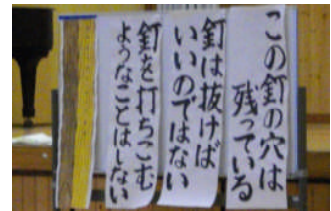 この釘の穴は
残っている
釘は抜けば
いいのではない
釘を打ちこむ
ようなことはしない